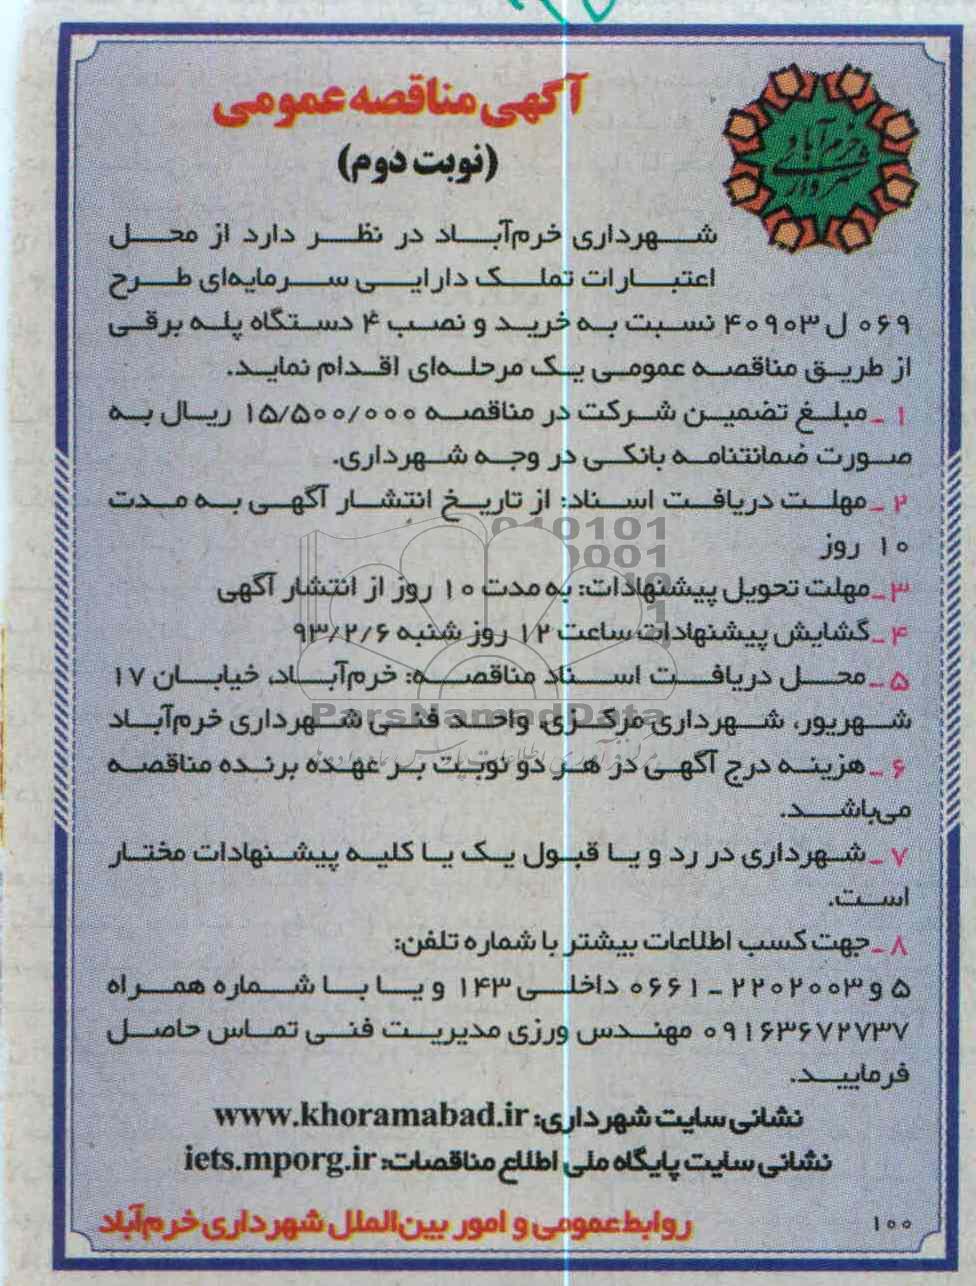 آگهی مناقصه عمومی
(نوبت دوم)
خرم‌آباد
شهرداری خرم‌آباد در نظر دارد از محل
اعتبارات تملک دارایی سرمایه‌ای طرح
۰۶۹ ل ۴۰۹۰۳ نسبت به خرید و نصب ۴ دستگاه پله برقی
از طریق مناقصه عمومی یک مرحله‌ای اقدام نماید.
۱ـ مبلغ تضمین شرکت در مناقصه ۱۵/۵۰۰/۰۰۰ ریال به
صورت ضمانتنامه بانکی در وجه شهرداری.
۲ـ مهلت دریافت اسناد: از تاریخ انتشار آگهی به مدت
۱۰ روز
۳ـ مهلت تحویل پیشنهادات: به مدت ۱۰ روز از انتشار آگهی
۴ـ گشایش پیشنهادات ساعت ۱۲ روز شنبه ۹۳/۲/۶
۵ـ محل دریافت اسناد مناقصه: خرم‌آباد، خیابان ۱۷
شهریور، شهرداری مرکزی، واحد فنی شهرداری خرم‌آباد
ParsNamadData
۶ـ هزینه درج آگهی در هر دو نوبت بر عهده برنده مناقصه
می‌باشد.
۷ـ شهرداری در رد و یا قبول یک یا کلیه پیشنهادات مختار
است.
۸ـ جهت کسب اطلاعات بیشتر با شماره تلفن:
۵ و ۲۲۰۲۰۰۳ ـ ۰۶۶۱ داخلی ۱۴۳ و یا با شماره همراه
۰۹۱۶۳۶۷۲۷۳۷ مهندس ورزی مدیریت فنی تماس حاصل
فرمایید.
نشانی سایت شهرداری: www.khoramabad.ir
نشانی سایت پایگاه ملی اطلاع مناقصات: iets.mporg.ir
روابط عمومی و امور بین‌الملل شهرداری خرم‌آباد
۱۰۰